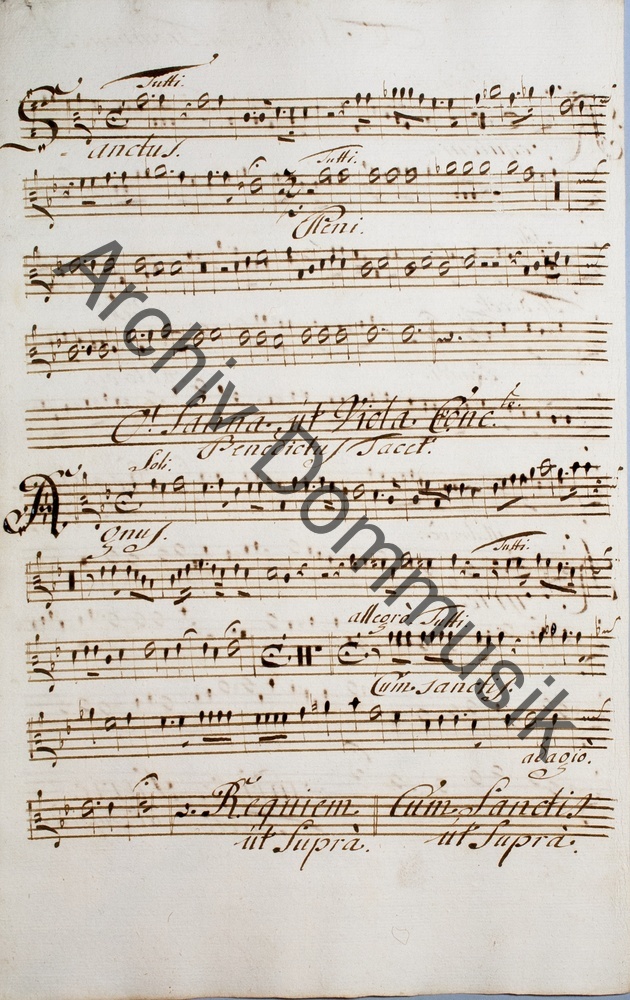 Tutti.
Sanctus.
Tutti.
Pleni.
O! Salua. ut Viola Conc.te
Benedictus Tacet.
Soli.
Agnus.
Tutti.
allegro. Tutti
Cum Sanctis.
adagio.
Requiem Cum Sanctis
ut Suprà. ut Suprà.
Archiv Dommusik